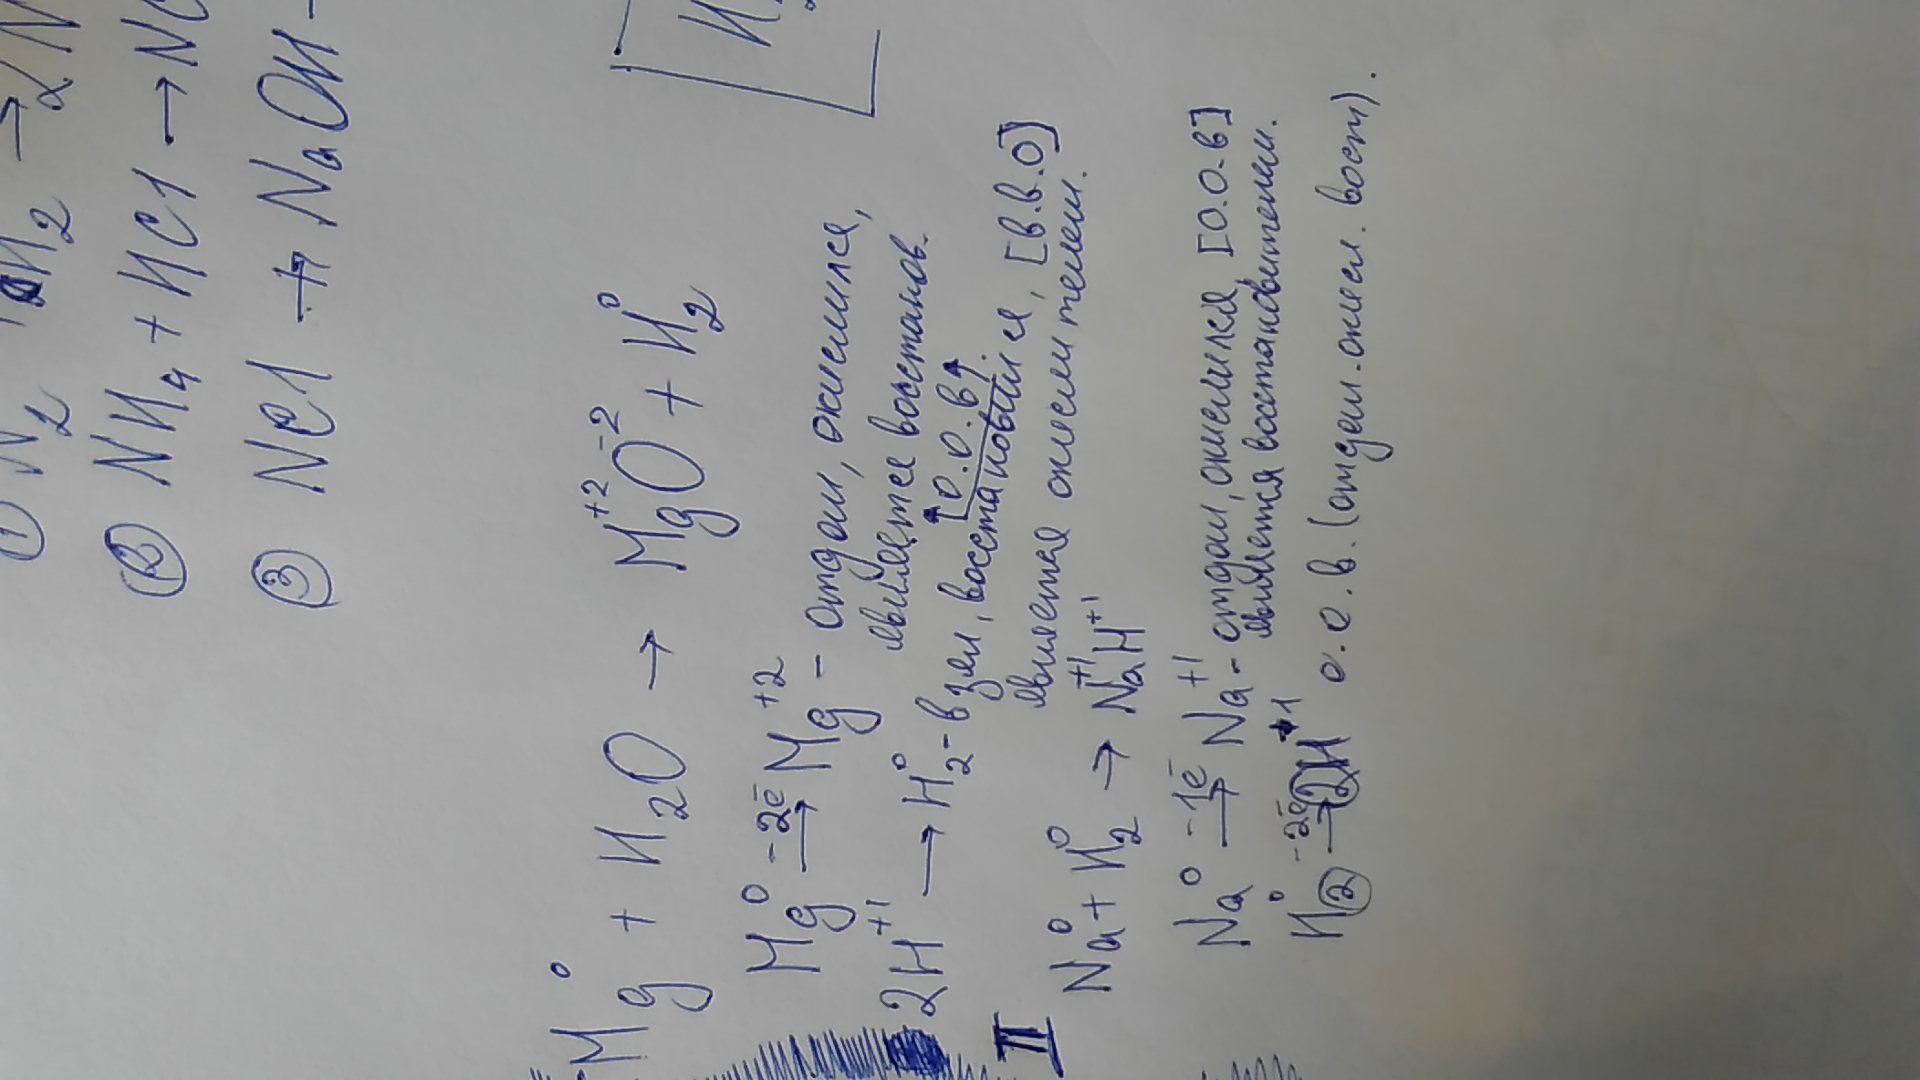 ① N₂ H₂ → 2N
② NH₄ + HCl → NC
③ NCl + NaOH -
Mg⁰ + H₂O → Mg⁺²O⁻² + H₂⁰
Mg⁰ -2ē→ Mg⁺² - отдал, окислился,
является восстанов.
[о.о.в]
2H⁺¹ → H₂⁰ - взял, восстановился, [в.в.о]
является окислителем.
II Na⁰ + H₂⁰ → Na⁺¹H⁺¹
Na⁰ -1ē→ Na⁺¹ - отдал, окислился, [о.о.в]
является восстановителем.
H₂⁰ -2ē→ 2H⁺¹ о.о.в. (отдал. окисл. вост).